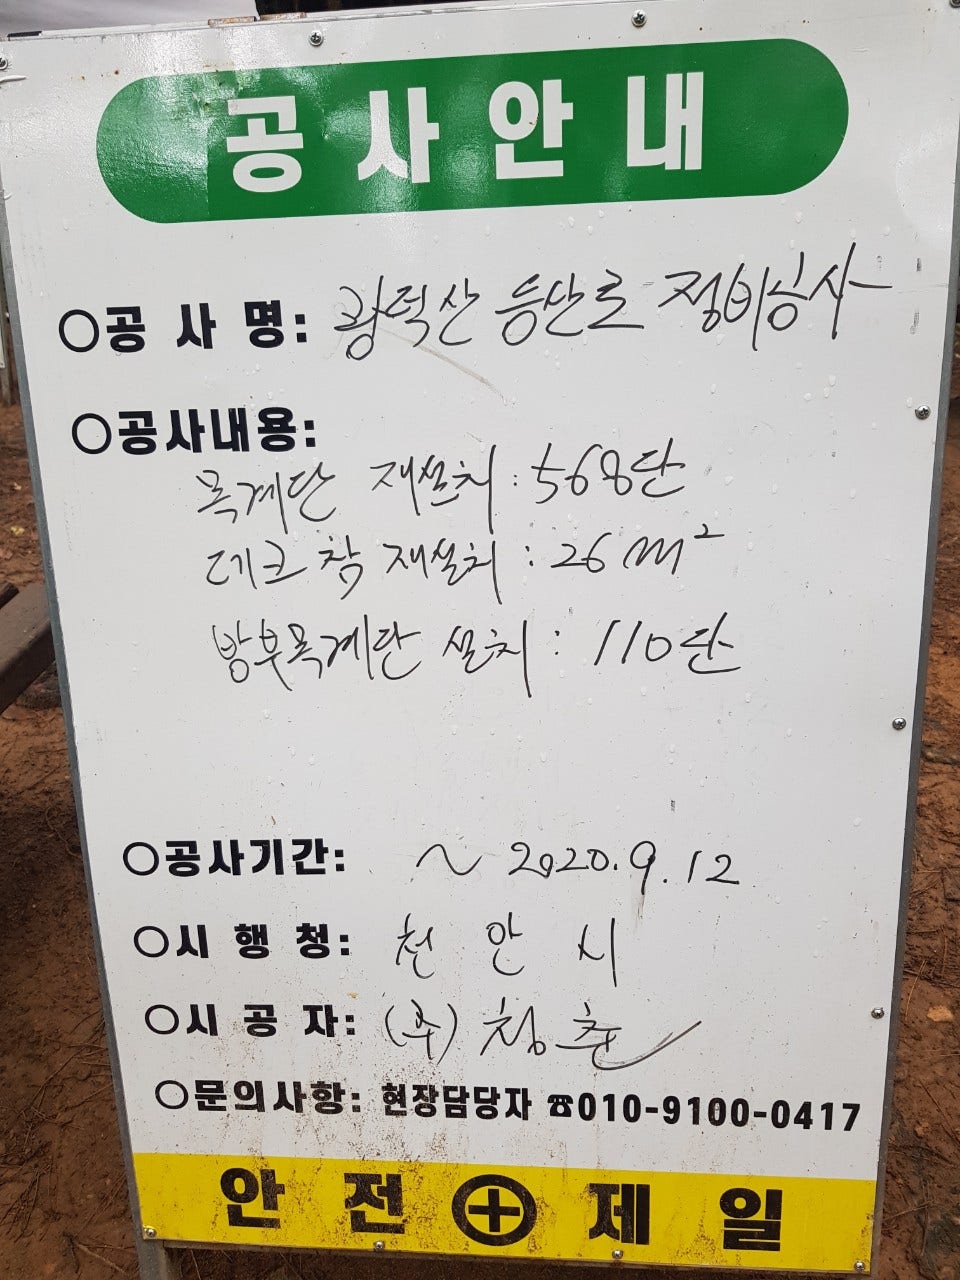 공사안내
○공 사 명: 광덕산 등산로 정비공사
○공사내용:
목계단 재설치 : 568단
데크 참 재설치 : 26m²
방부목계단 설치 : 110단
○공사기간: ~ 2020.9.12
○시 행 청: 천 안 시
○시 공 자: (주) 청춘
○문의사항: 현장담당자 ☎010-9100-0417
안 전 제 일